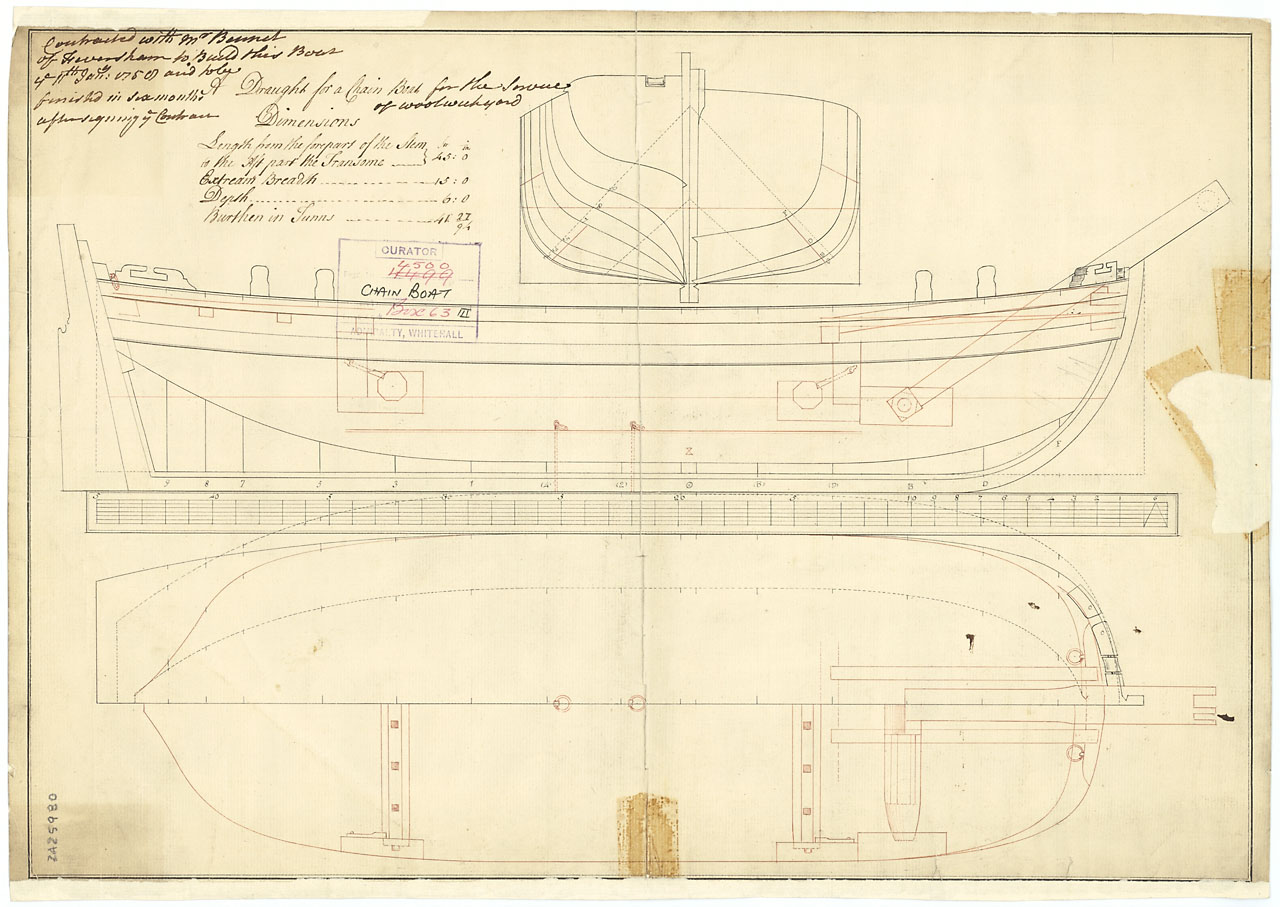 Contracted with Mr Bennet
of Feversham to Build this Boat
ye 11th Jany: 1758 and to be
finished in six months
after signing ye Contract
A Draught for a Chain Boat for the Service
of Woolwich yard
Dimensions
Length from the forepart of the Stem
to the Aft part the Transome 45 : 0
Extream Breadth 15 : 0
Depth 6 : 0
Burthen in Tunns 41 27/94
CURATOR
4500
4499
CHAIN BOAT
Box 63 III
ADMIRALTY, WHITEHALL
F
9 8 7 5 3 1 (A) (2) (B) (D) B D
10 9 8 7 6 5 4 3 2 1
ZAZ5980